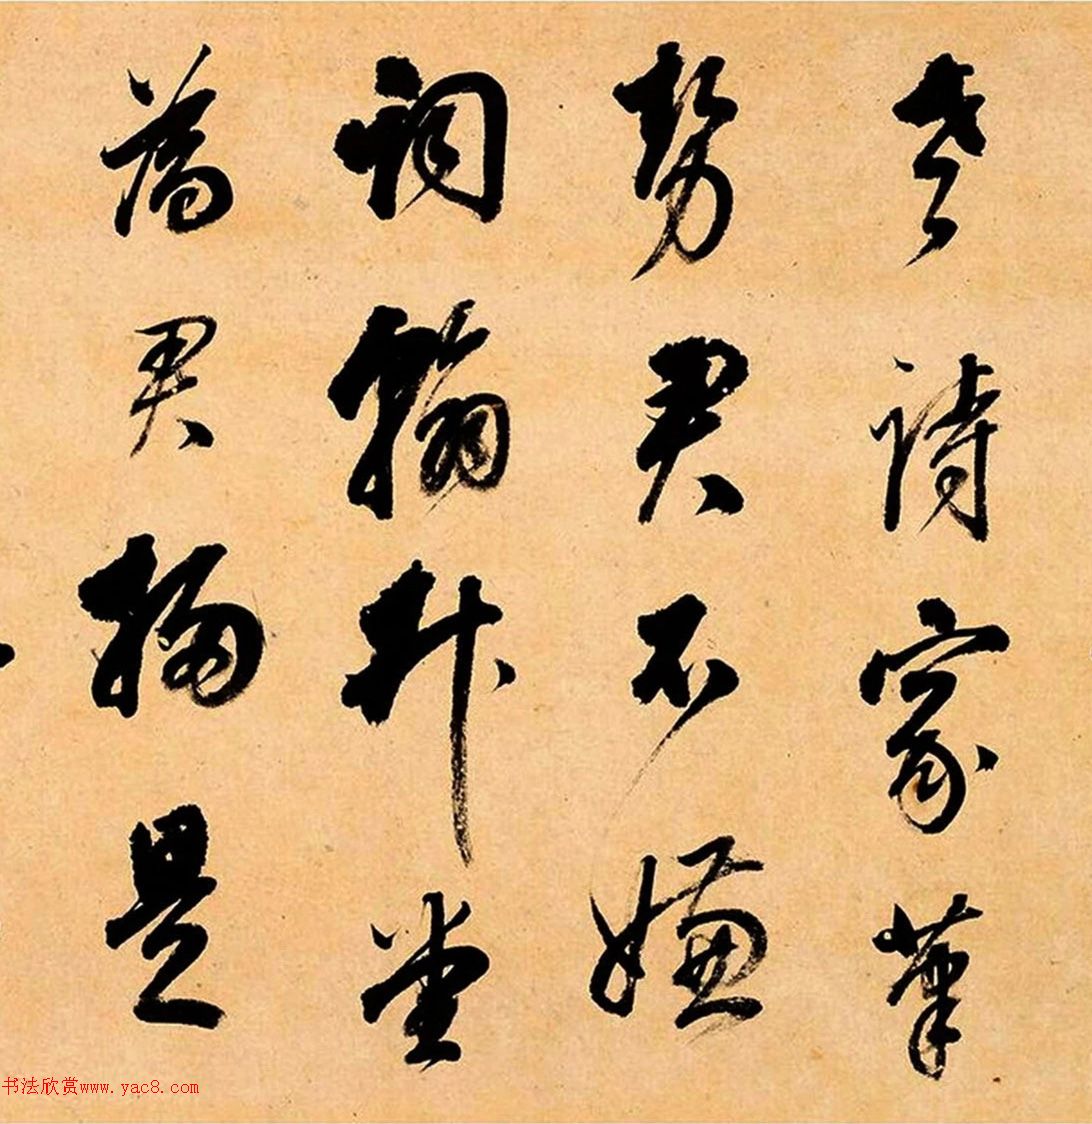 老詩家筆
勢君不嫌
詞翰升堂
為君掃是
书法欣赏www.yac8.com